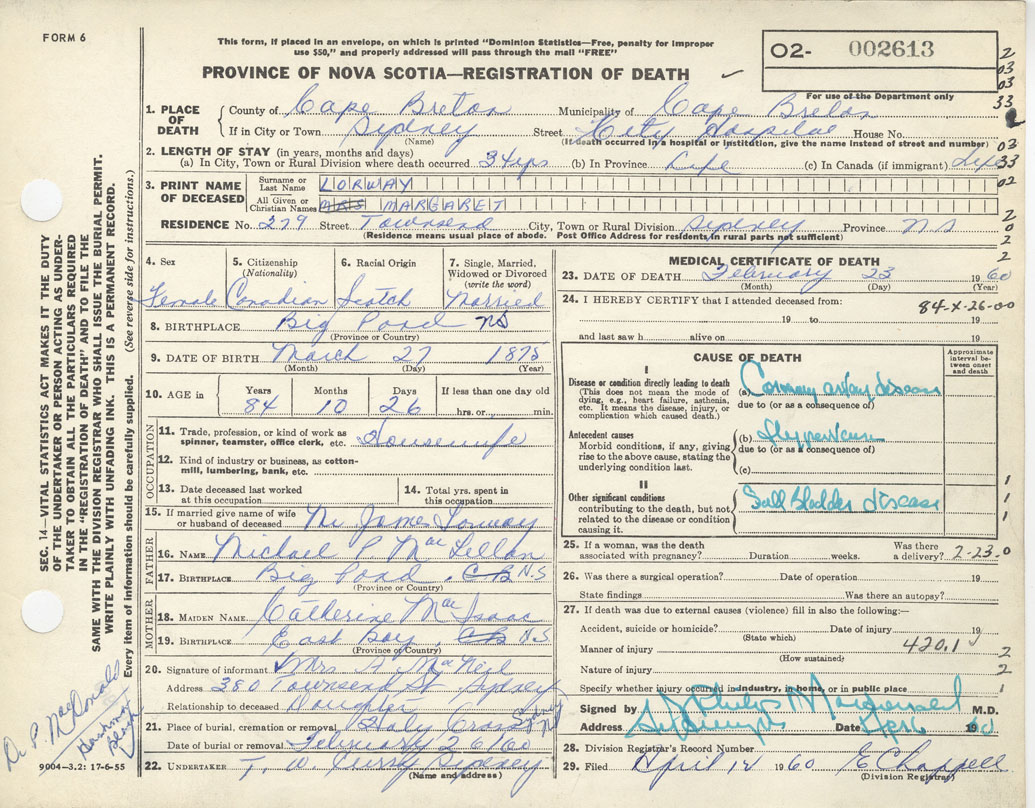 FORM 6
This form, if placed in an envelope, on which is printed "Dominion Statistics—Free, penalty for improper
use $50," and properly addressed will pass through the mail "FREE"
PROVINCE OF NOVA SCOTIA—REGISTRATION OF DEATH
02- 002613
For use of the Department only
2
03
03
33
2
03
33
02
2
0
2
2
1. PLACE OF DEATH
County of Cape Breton Municipality of Cape Breton
If in City or Town Sydney Street City Hospital House No.
(Name) (If death occurred in a hospital or institution, give the name instead of street and number)
2. LENGTH OF STAY (in years, months and days)
(a) In City, Town or Rural Division where death occurred 34 yrs (b) In Province Life (c) In Canada (if immigrant) Life
3. PRINT NAME OF DECEASED
Surname or Last Name LORWAY
All Given or Christian Names MRS MARGARET
RESIDENCE No. 279 Street Townsend City, Town or Rural Division Sydney Province NS
(Residence means usual place of abode. Post Office Address for residents in rural parts not sufficient)
4. Sex Female
5. Citizenship (Nationality) Canadian
6. Racial Origin Scotch
7. Single, Married, Widowed or Divorced (write the word) Married
8. BIRTHPLACE Big Pond NS
(Province or Country)
9. DATE OF BIRTH March 27 1875
(Month) (Day) (Year)
10. AGE in Years Months Days If less than one day old
84 10 26 hrs. or min.
OCCUPATION
11. Trade, profession, or kind of work as spinner, teamster, office clerk, etc. Housewife
12. Kind of industry or business, as cotton-mill, lumbering, bank, etc.
13. Date deceased last worked at this occupation
14. Total yrs. spent in this occupation
15. If married give name of wife or husband of deceased Mr James Lorway
FATHER
16. NAME Michael P MacLellan
17. BIRTHPLACE Big Pond, CB N.S
(Province or Country)
MOTHER
18. MAIDEN NAME Catherine MacIsaac
19. BIRTHPLACE East Bay, CB N.S
(Province or Country)
20. Signature of informant Mrs A. MacNeil
Address 380 Townsend St Sydney
Relationship to deceased Daughter
21. Place of burial, cremation or removal Holy Cross Sydney
Date of burial or removal February 26/60
22. UNDERTAKER T. W. Curry Sydney
(Name and address)
MEDICAL CERTIFICATE OF DEATH
23. DATE OF DEATH February 23 1960
(Month) (Day) (Year)
24. I HEREBY CERTIFY that I attended deceased from:
84-X-26-00
19 to 19
and last saw h alive on 19
CAUSE OF DEATH
Approximate interval between onset and death
I
Disease or condition directly leading to death
(This does not mean the mode of dying, e.g., heart failure, asthenia, etc. It means the disease, injury, or complication which caused death.)
(a) Coronary artery disease
due to (or as a consequence of)
Antecedent causes
Morbid conditions, if any, giving rise to the above cause, stating the underlying condition last.
(b)
due to (or as a consequence of)
(c)
II
Other significant conditions
contributing to the death, but not related to the disease or condition causing it.
Gall Bladder disease
1
1
1
25. If a woman, was the death associated with pregnancy? Duration weeks. Was there a delivery? 2-23.0
26. Was there a surgical operation? Date of operation 19
State findings Was there an autopsy?
27. If death was due to external causes (violence) fill in also the following:—
Accident, suicide or homicide? Date of injury 19
(State which)
Manner of injury 420.1 2
(How sustained)
Nature of injury 2
Specify whether injury occurred in industry, in home, or in public place 1
Signed by Philip Macdonald M.D.
Address Date 1960
28. Division Registrar's Record Number
29. Filed April 12 1960 E Chappell
(Division Registrar)
SEC. 14—VITAL STATISTICS ACT MAKES IT THE DUTY
OF THE UNDERTAKER OR PERSON ACTING AS UNDER-
TAKER TO OBTAIN ALL THE PARTICULARS REQUIRED
IN THE "REGISTRATION OF DEATH" AND TO FILE THE
SAME WITH THE DIVISION REGISTRAR WHO SHALL ISSUE THE BURIAL PERMIT.
WRITE PLAINLY WITH UNFADING INK. THIS IS A PERMANENT RECORD.
Every item of information should be carefully supplied. (See reverse side for instructions.)
Dr P. MacDonald
9004-3.2: 17-6-55